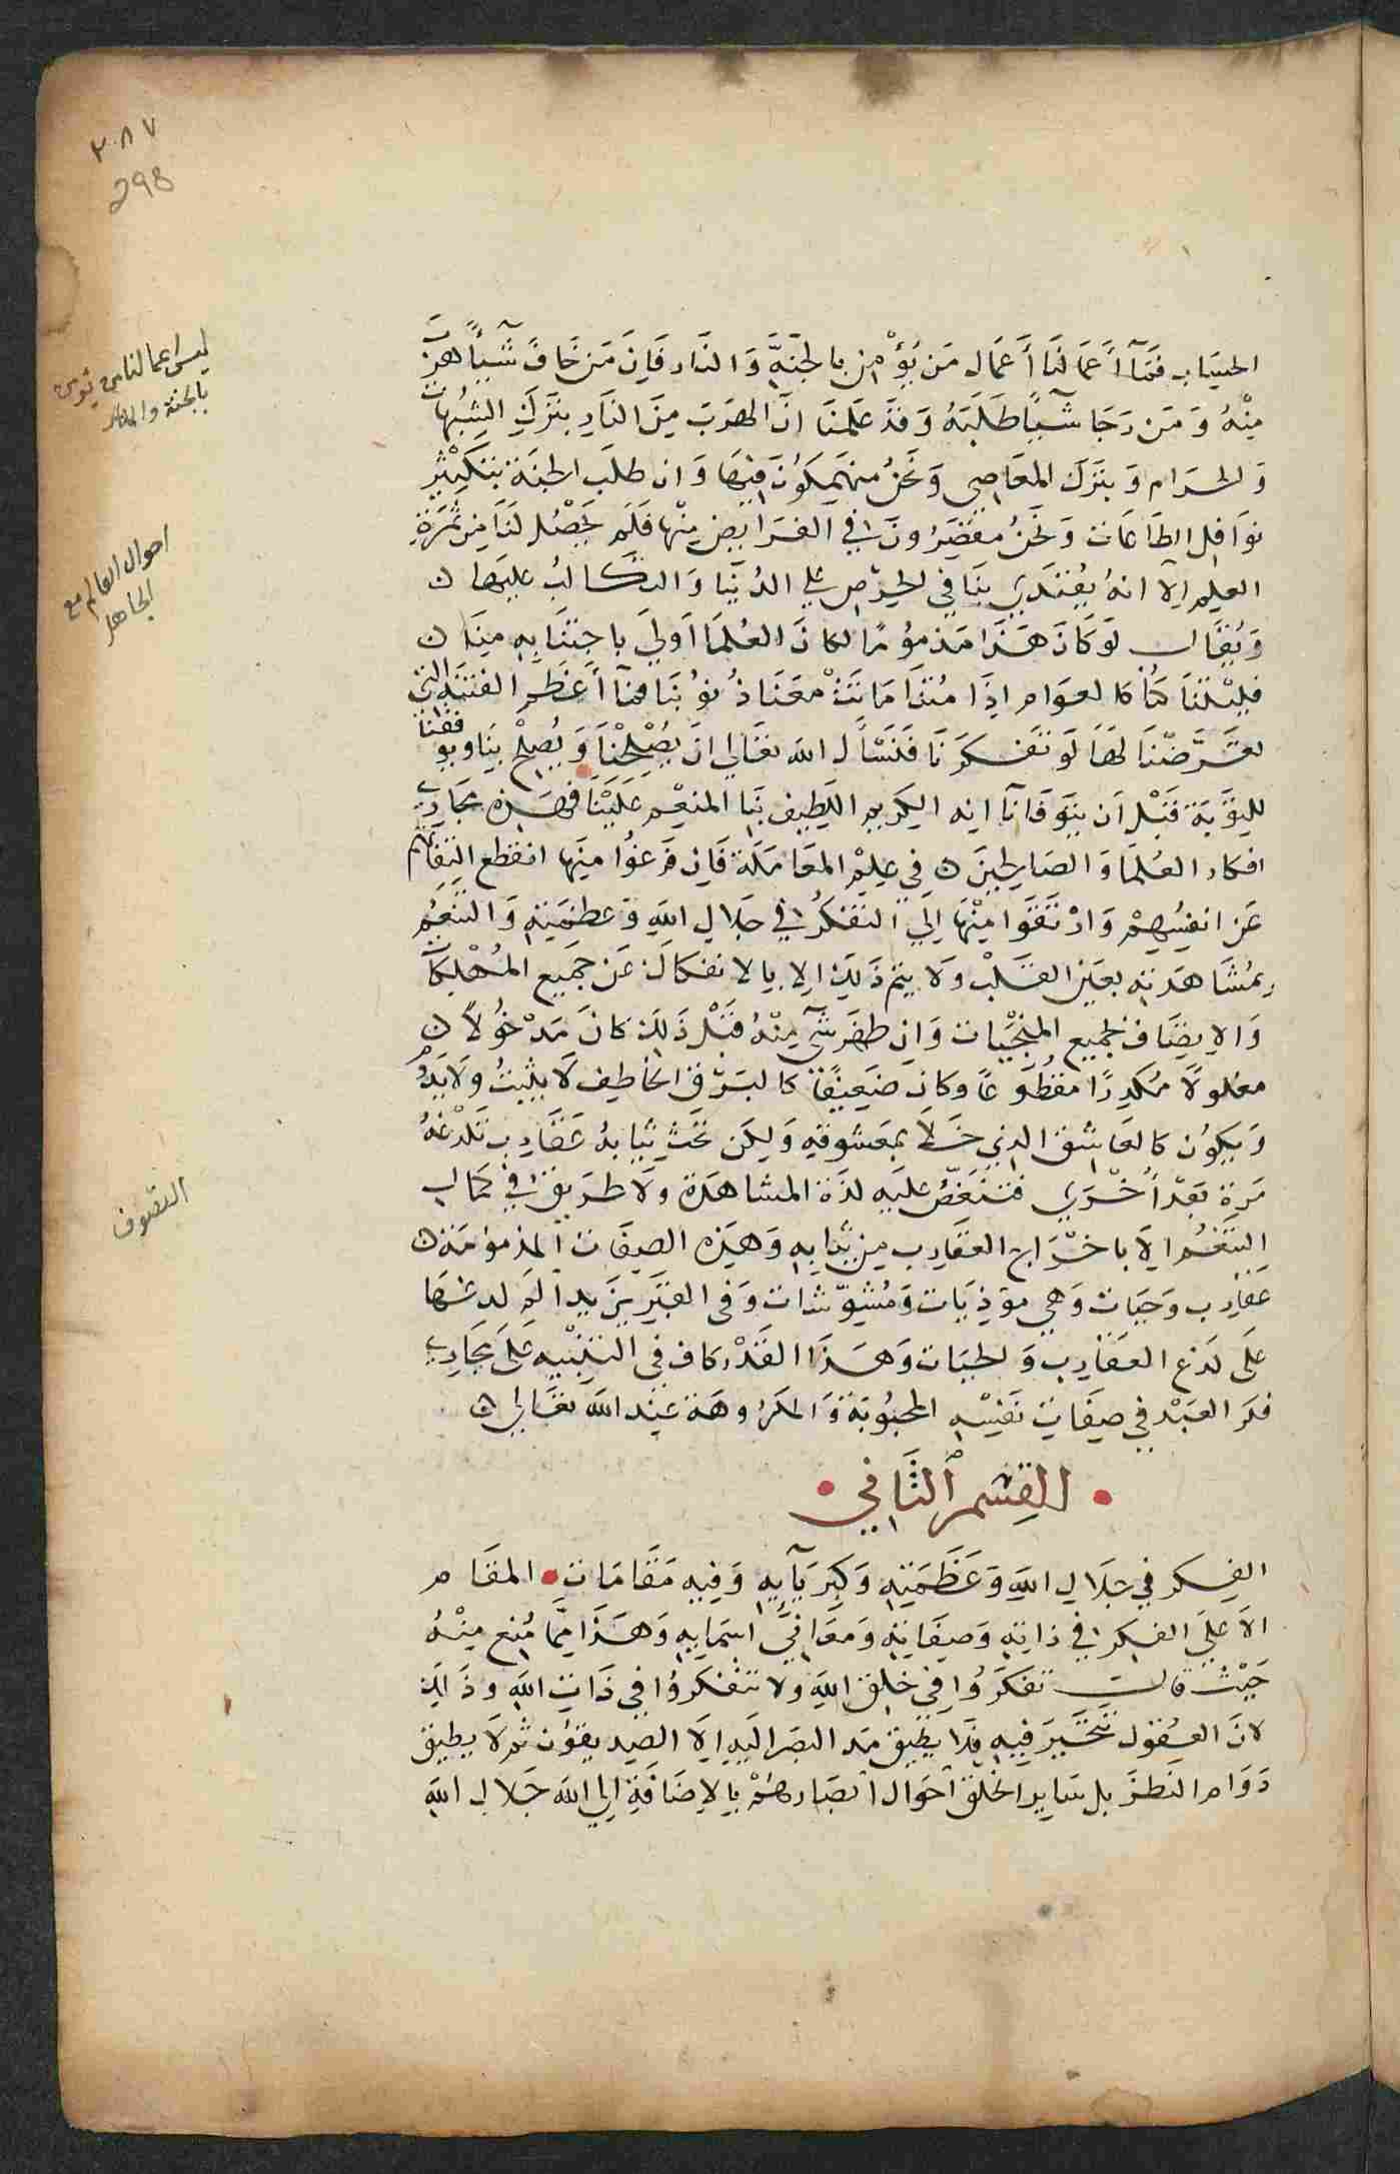 ٣٠٨٧
298
الحساب فَمَا أعمالنا أعمال من يؤمن بالجنة والنار فان من خاف شيأ هرب
منه ومن رجا شيأ طلبه وقد علمنا ان الهرب من النار بترك الشبهات
والحرام وبترك المعاصى ونحن منهمكون فيها وان طلب الجنة بتكثير
نوافل الطاعات ونحن مقصرون في الفرايض منها فلم يحصل لنا من ثمرة
العلم الا انه يقتدي بنا في الحرص علي الدنيا والتكالب عليها ن
ويقال لو كان هذا مذموما لكان العلما اولي باجتنابه منا ن
فليتنا كنا كالعوام اذا متنا ماتت معنا ذنوبنا فما أعظم الفتنة التي
تعرضنا لها لو تفكرنا فنسأل الله تعالي ان يصلحنا ويصلح بنا ويوفقنا
للتوبة قبل ان يتوفانا انه الكريم اللطيف بنا المنعم علينا فهذه مجاري
افكار العلما والصالحين ن في علم المعاملة فان فرغوا منها انقطع التفاتهم
عن انفسهم وارتقوا منها إلي التفكر في جلال الله وعظمته والتنعم
بمشاهدته بعين القلب ولا يتم ذلك الا بالانفكاك عن جميع المهلكات
والاتصاف بجميع المنجيات وان ظهر شي منه قبل ذلك كان مدخولا ن
معلولا مكدرا مقطوعا وكان ضعيفا كالبرق الخاطف لا يثبت ولا يدوم
ويكون كالعاشق الذي خلا بمعشوقه ولكن تحت ثيابه عقارب تلدغه
مرة بعد أخري فتنغص عليه لذة المشاهدة ولا طريق في كمال
التنعم الا باخراج العقارب من ثيابه وهذه الصفات المذمومة ن
عقارب وحيات وهي موذيات ومشوشات وفي القبر يزيد الم لدغها
على لدغ العقارب والحيات وهذا القدر كاف في التنبيه على مجاري
فكر العبد في صفات نفسه المحبوبة والمكروهة عند الله تعالي ن
• القسم الثاني •
الفكر في جلال الله وعظمته وكبريآيه وفيه مقامات • المقام
الاعلي الفكر في ذاته وصفاته ومعاني اسمايه وهذا مما منع منه
حيث قالت تفكروا في خلق الله ولا تتفكروا في ذات الله وذلك
لان العقول تتحير فيه فلا يطيق مد البصر اليه الا الصديقون ثم لا يطيق
دوام النظر بل ساير الخلق احوال ابصارهم بالاضافة الي الله جلال الله
ليس اعمالنا من يومن
بالجنة والنار
احوال العالم مع
الجاهل
التصوف